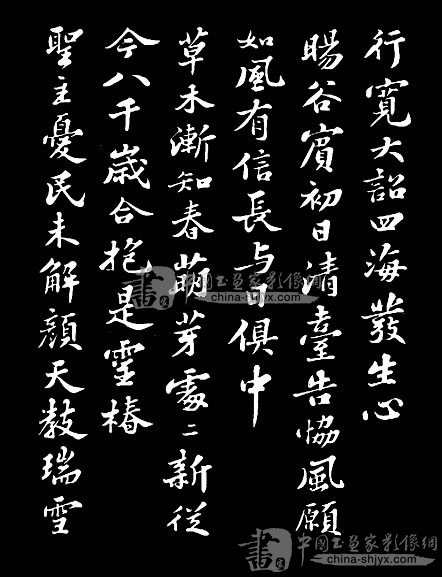 行寬大詔四海發生心
暘谷賓初日清臺告恊風願
如風有信長与日俱中
草木漸知春萌芽處二新從
今八千歲合抱是靈椿
聖主憂民未解顏天教瑞雪
書
中国书画家影像網
china-shjyx.com
書
中国书画家影像網
china-shjyx.com